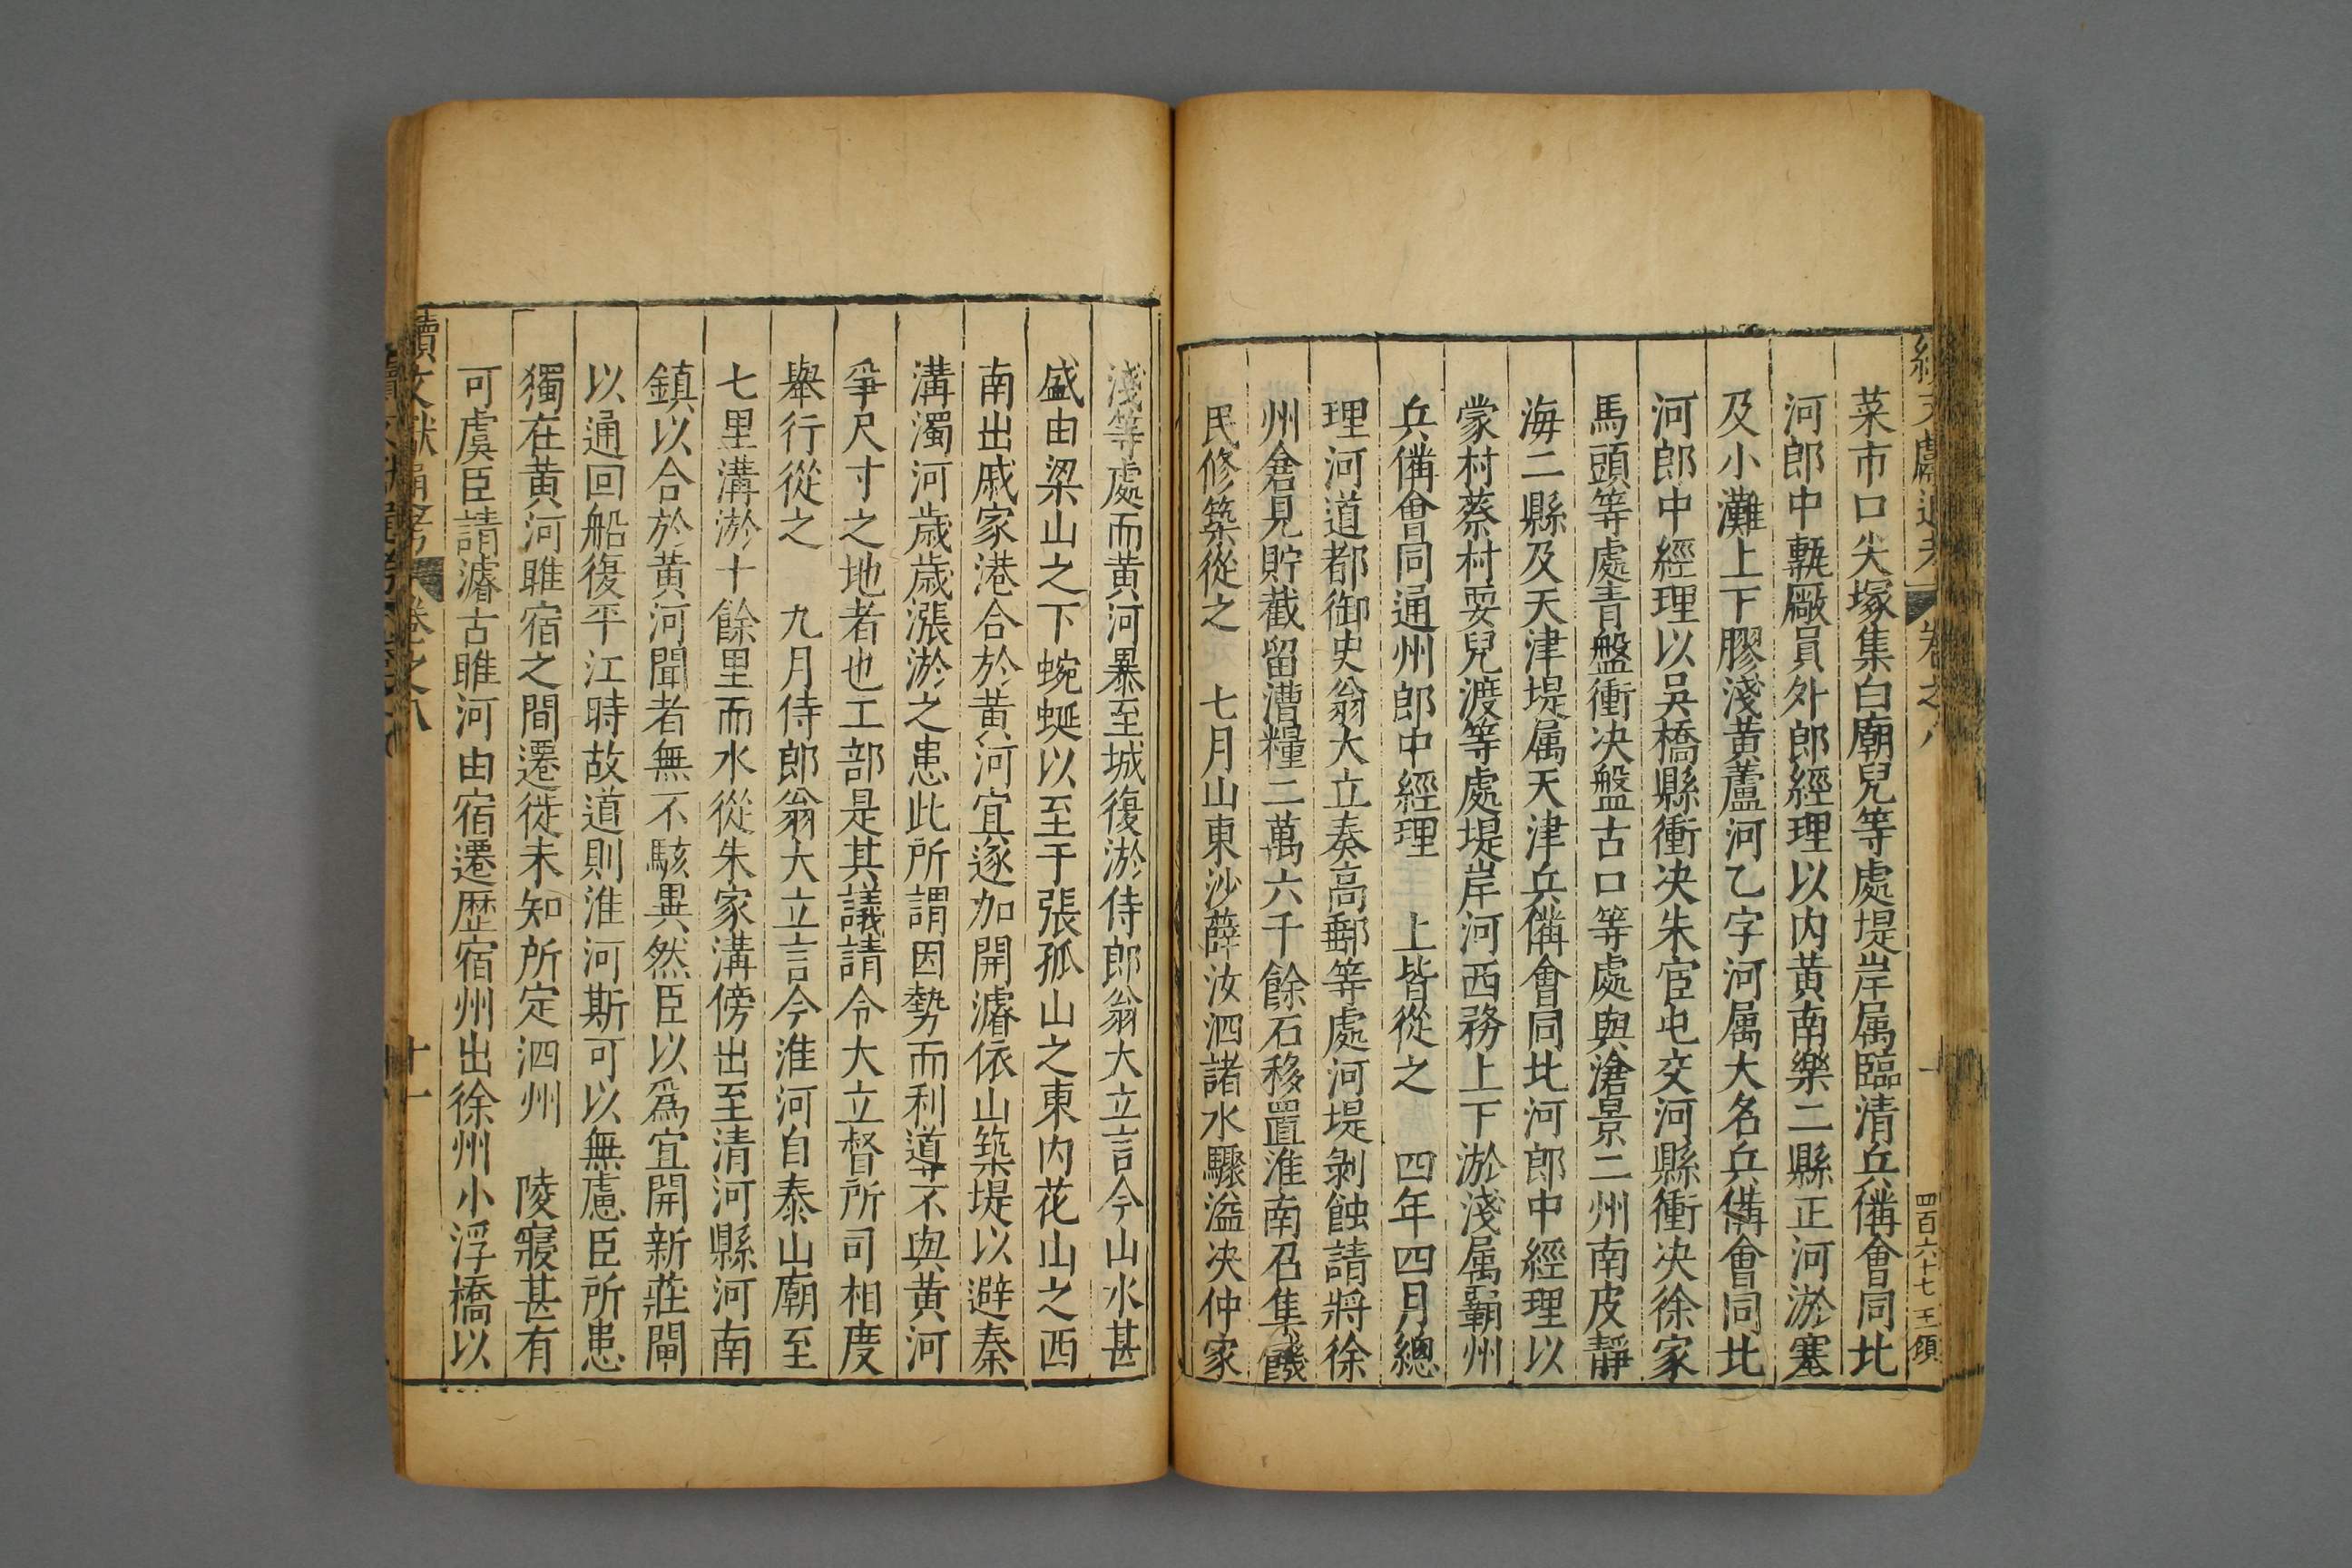 續文獻通考 卷之八 四百六十七 王䪴
菜市口尖塚集白廟兒等處堤岸属臨清兵備會同北
河郎中轄厰員外郎經理以内黄南樂二縣正河淤塞
及小灘上下膠淺黄蘆河乙字河属大名兵備會同北
河郎中經理以吳橋縣衝決朱官屯交河縣衝決徐家
馬頭等處青盤衝決盤古口等處與滄景二州南皮靜
海二縣及天津堤属天津兵備會同北河郎中經理以
蒙村蔡村耍兒渡等處堤岸河西務上下淤淺属霸州
兵備會同通州郎中經理 上皆從之 四年四月總
理河道都御史翁大立奏高郵等處河堤剝蝕請將徐
州倉見貯截留漕糧二萬六千餘石移置淮南召集饑
民修築從之 七月山東沙薛汶泗諸水驟溢決仲家
淺等處而黄河暴至城復淤侍郎翁大立言今山水甚
盛由梁山之下蜿蜒以至于張孤山之東内花山之西
南出戚家港合於黄河宜逐加開濬依山築堤以避秦
溝濁河歳歳漲淤之患此所謂因勢而利導不與黄河
爭尺寸之地者也工部是其議請令大立督所司相度
舉行從之 九月侍郎翁大立言今淮河自泰山廟至
七里溝淤十餘里而水從朱家溝傍出至清河縣河南
鎮以合於黄河聞者無不駭異然臣以爲宜開新莊閘
以通回船復平江時故道則淮河斯可以無慮臣所患
獨在黄河睢宿之間遷徙未知所定泗州 陵寢甚有
可虞臣請濬古睢河由宿遷歷宿州出徐州小浮橋以
續文獻通考 卷之八 十一